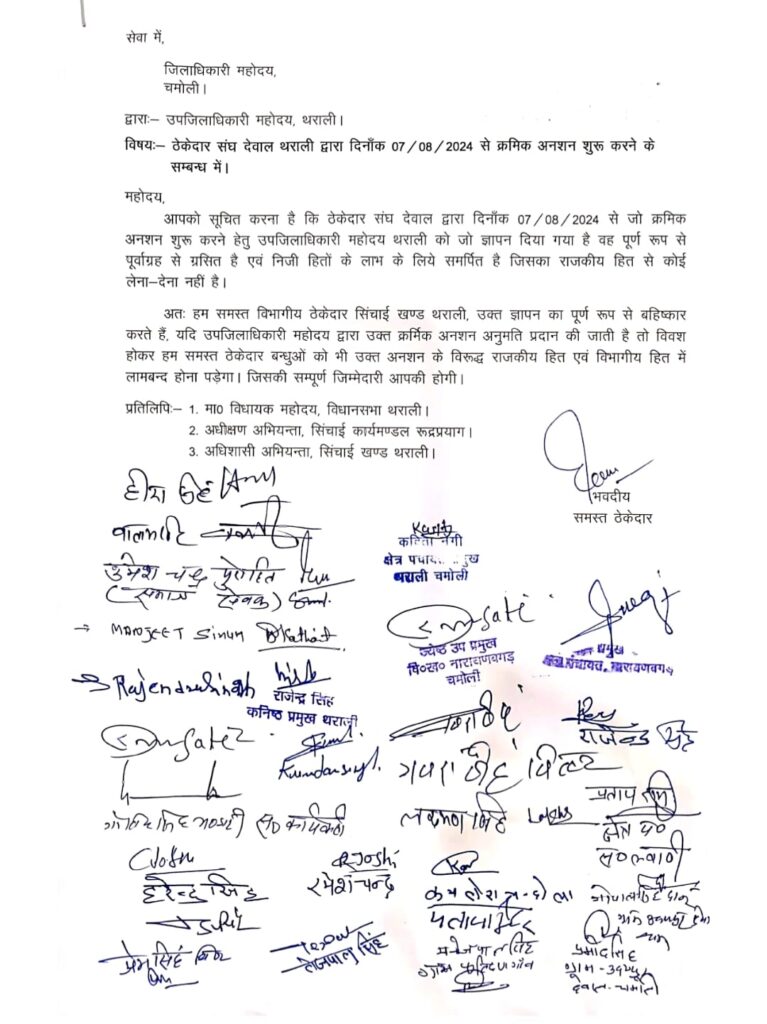 सेवा में,
जिलाधिकारी महोदय,
चमोली।
द्वाराः– उपजिलाधिकारी महोदय, थराली।
विषयः– ठेकेदार संघ देवाल थराली द्वारा दिनाँक 07/08/2024 से क्रमिक अनशन शुरू करने के
सम्बन्ध में।
महोदय,
आपको सूचित करना है कि ठेकेदार संघ देवाल द्वारा दिनाँक 07/08/2024 से जो क्रमिक
अनशन शुरू करने हेतु उपजिलाधिकारी महोदय थराली को जो ज्ञापन दिया गया है वह पूर्ण रूप से
पूर्वाग्रह से ग्रसित है एवं निजी हितों के लाभ के लिये समर्पित है जिसका राजकीय हित से कोई
लेना–देना नहीं है।
अतः हम समस्त विभागीय ठेकेदार सिंचाई खण्ड थराली, उक्त ज्ञापन का पूर्ण रूप से बहिष्कार
करते हैं, यदि उपजिलाधिकारी महोदय द्वारा उक्त क्रर्मिक अनशन अनुमति प्रदान की जाती है तो विवश
होकर हम समस्त ठेकेदार बन्धुओं को भी उक्त अनशन के विरूद्ध राजकीय हित एवं विभागीय हित में
लामबन्द होना पड़ेगा। जिसकी सम्पूर्ण जिम्मेदारी आपकी होगी।
प्रतिलिपिः– 1. मा0 विधायक महोदय, विधानसभा थराली।
2. अधीक्षण अभियन्ता, सिंचाई कार्यमण्डल रूद्रप्रयाग।
3. अधिशासी अभियन्ता, सिंचाई खण्ड थराली।
भवदीय
समस्त ठेकेदार
कविता नेगी
क्षेत्र पंचायत प्रमुख
थराली चमोली
उमेश चन्द्र पुरोहित
(समाज सेवक)
ज्येष्ठ उप प्रमुख
वि०ख० नारायणबगड़
चमोली
प्रमुख
क्षेत्र पंचायत, नारायणबगड़
Rajendra Singh
राजेन्द्र सिंह
कनिष्ठ प्रमुख थराली
राजेन्द्र सिंह
Kundan Singh
लक्ष्मण सिंह
प्रताप राम
हरेन्द्र सिंह
RJoshi
रमेश चन्द्र
प्रेम सिंह
तेजपाल सिंह
देवाल-चमोली